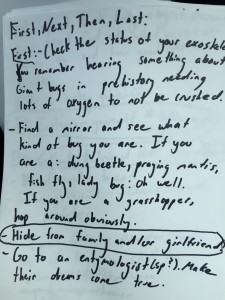 First, Next, Then, Last:
First:- Check the status of your exoskele
You remember hearing something about
Giant bugs in prehistory needing
lots of oxygen to not be crushed.
- Find a mirror and see what
kind of bug you are. If you
are a: dung beetle, praying mantis,
fish fly, lady bug: Oh well.
If you are a grasshopper,
hop around obviously.
- Hide from family and/or girlfriend
- Go to an entymologist (sp?). Make
their dreams come true.